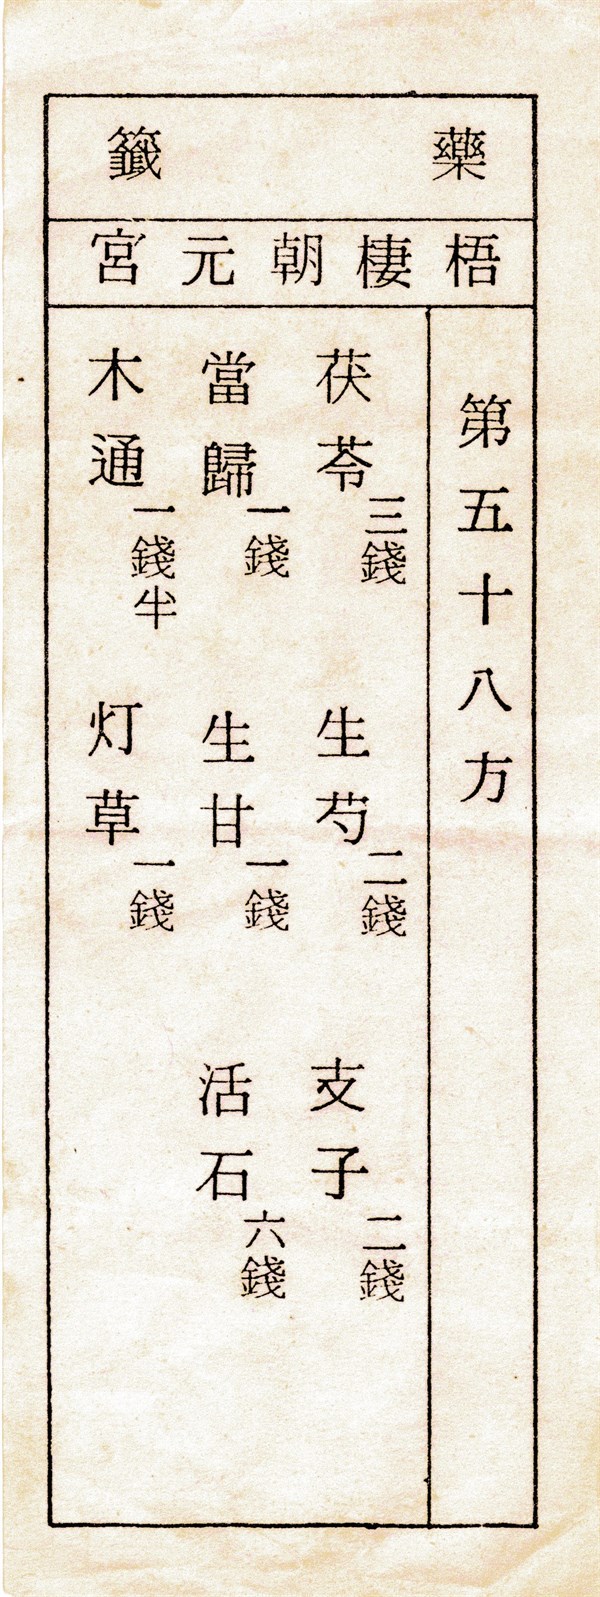 藥籤
梧棲朝元宮
第五十八方
茯苓三錢 生芍二錢 支子二錢
當歸一錢 生甘一錢 活石六錢
木通一錢半 灯草一錢